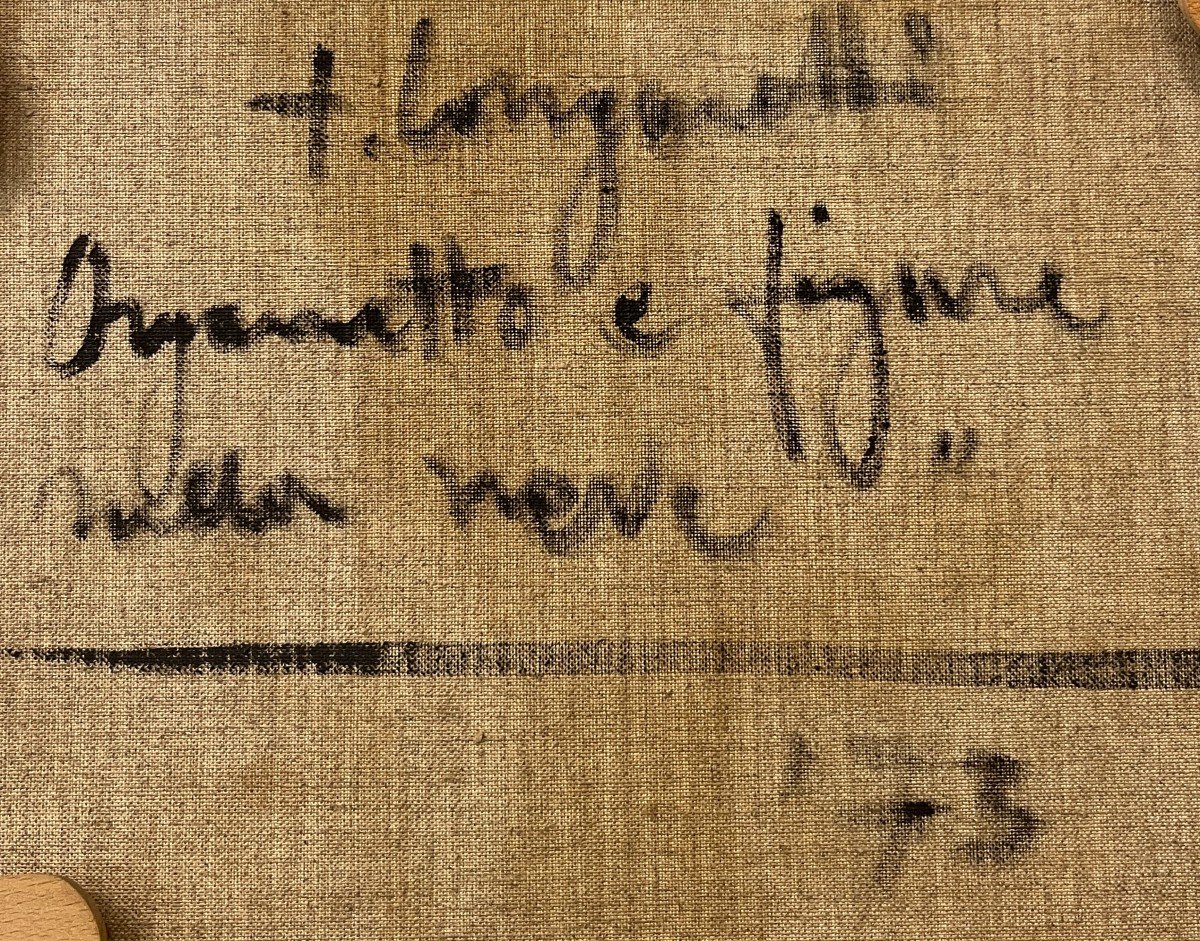 t. Longaretti
Organetto e figure
nella neve "
'73